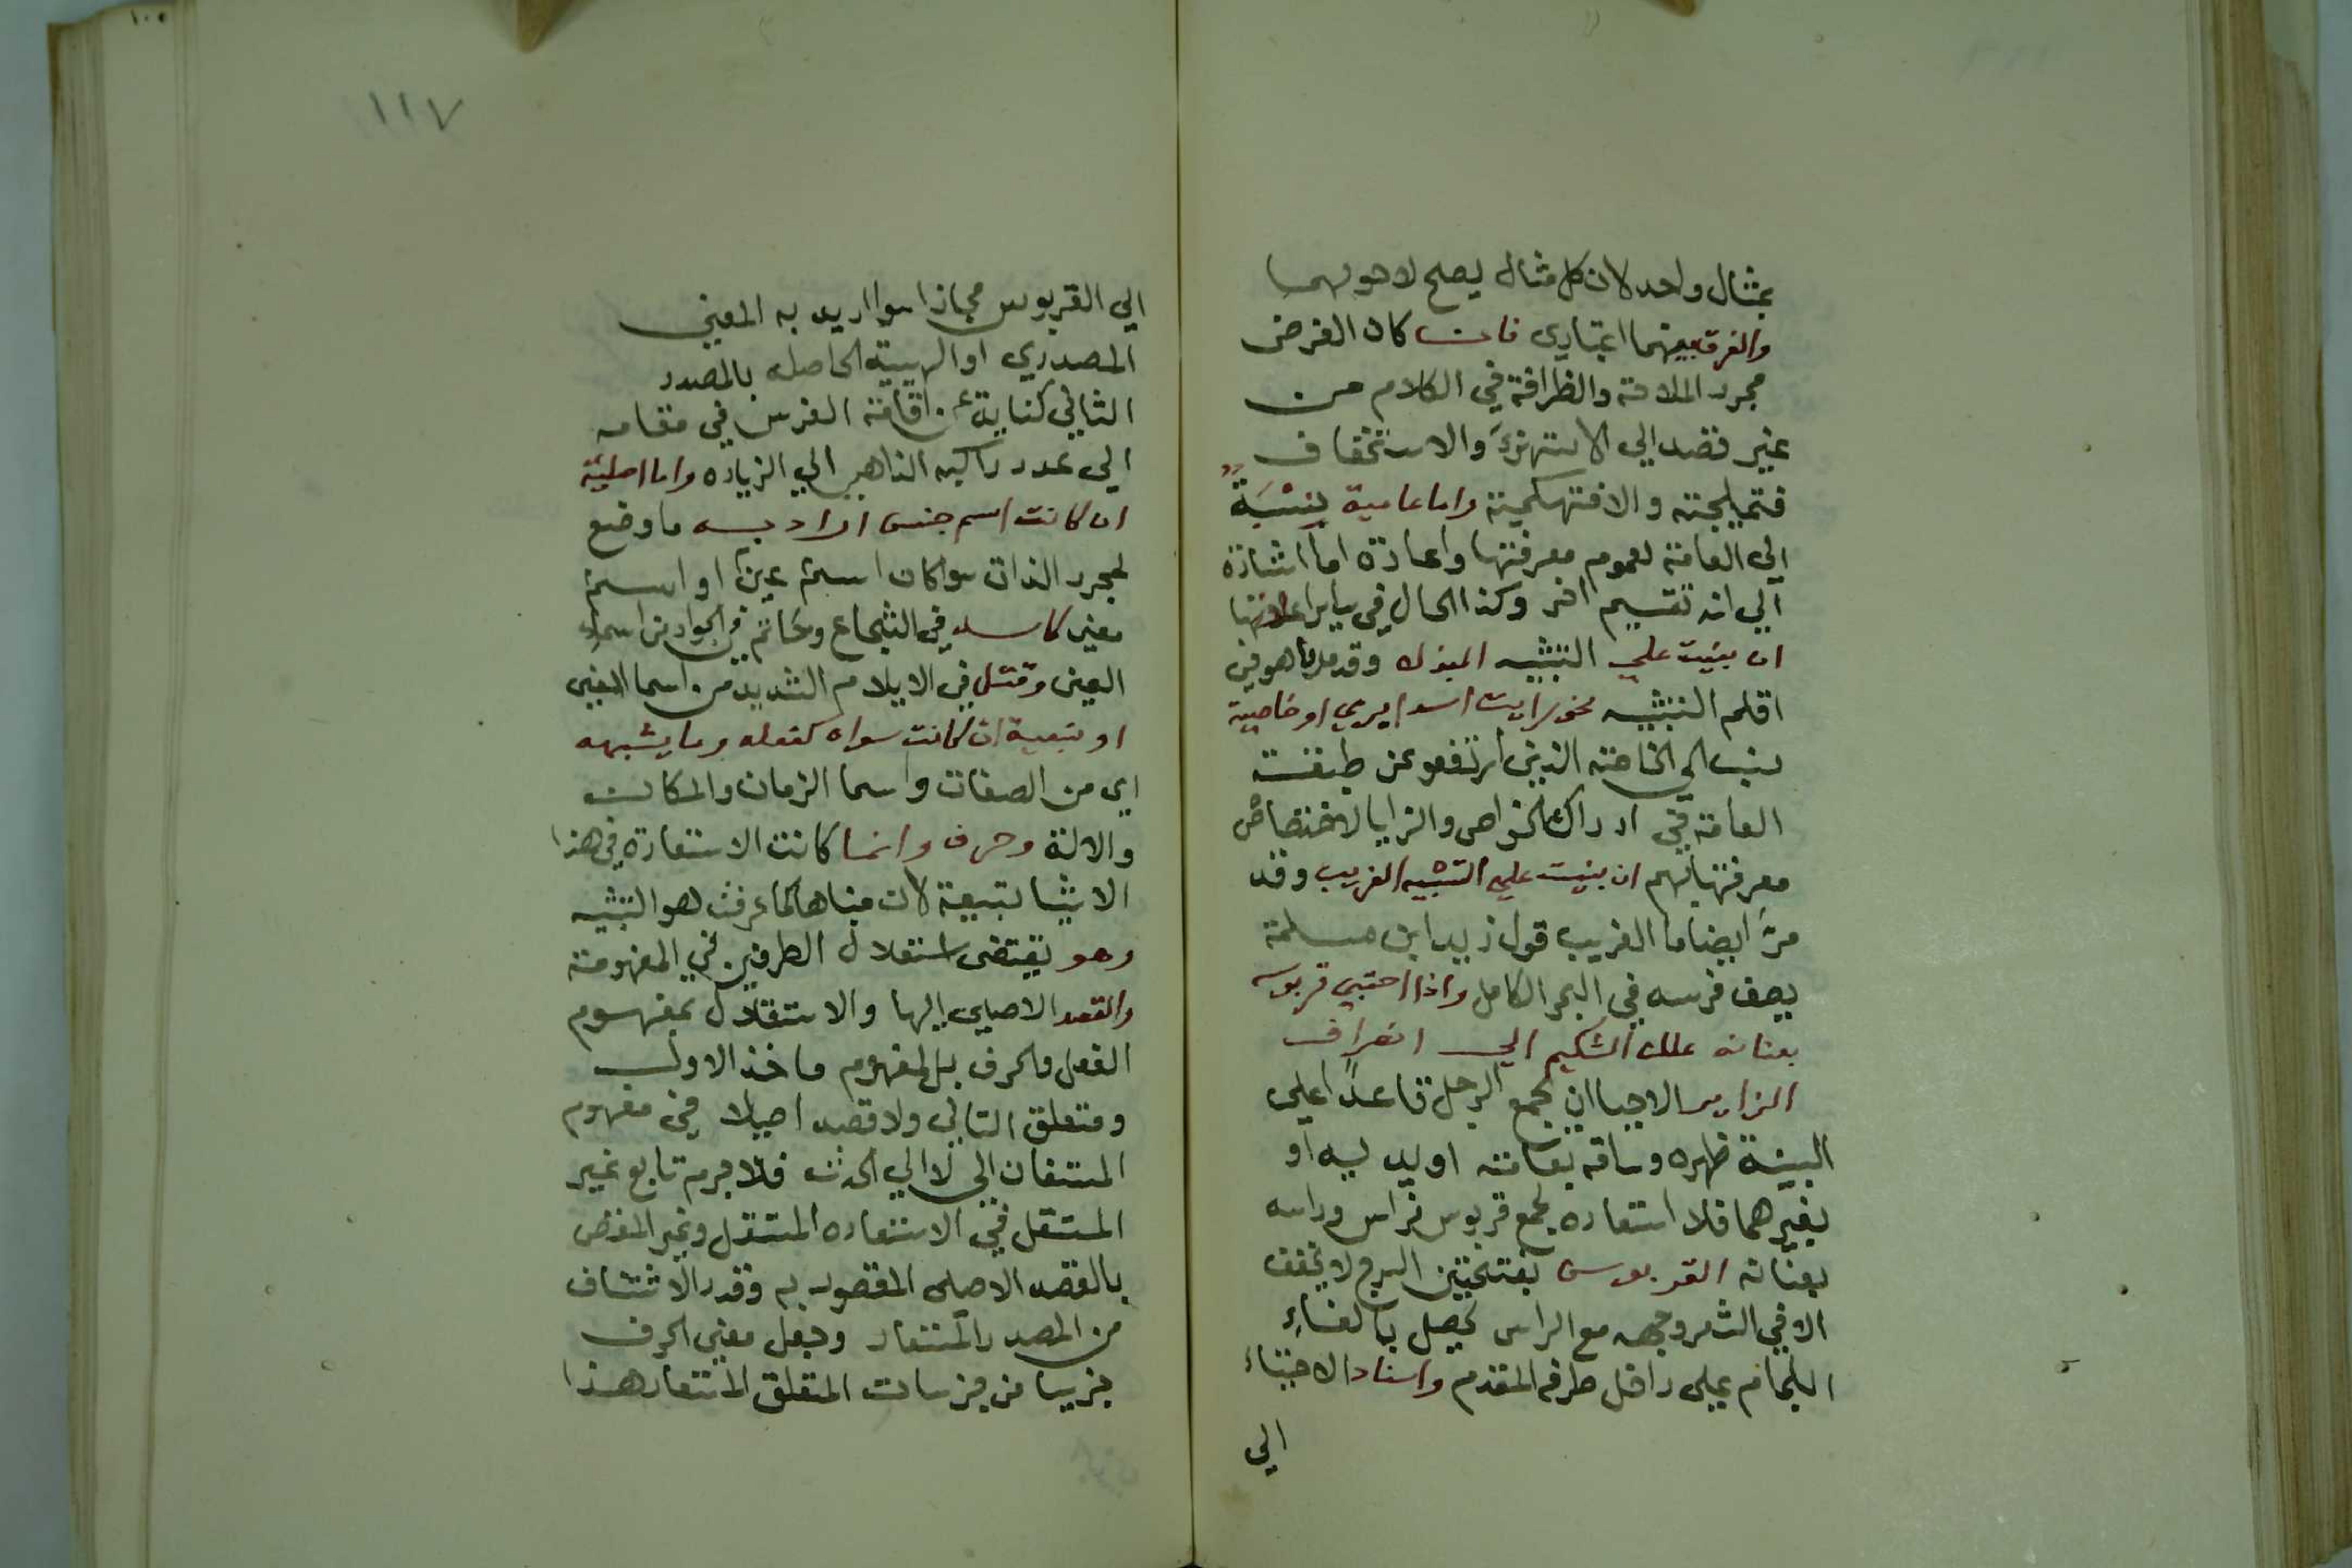 بمثال واحد لان كل مثال يصلح لاحدهما
والفرق بينهما اعتباري فان كان الغرض
مجرد الملاحة والظرافة في الكلام من
غير قصد الي الاستهزء والاستخفاف
فتمليحية والا فتهكمية واما عامية نِسْبَةً
الي العامة لعموم معرفتها واعادة اما اشارة
الي انه تقسيم اخر وكذا الحال في
ان بنيت علي التشبيه المبذل وقد مر ما هو في
التشبيه نحو رايت اسدا يرمي او خاصية
نسب الي الخاصة الذين ارتفعو عن طبقة
العامة في ادراك الخواص والمزايا لاختصاص
معرفتها بهم ان بنيت علي التشبيه الغريب وقد
مرّ ايضا ما الغريب قول زيد ابن مسلمة
يصف فرسه في البحر الكامل واذا احتبي قربوسه
بعنانه علك الشكيم الي انصراف
الزاير الاحتبا ان يجمع الرجل قاعدًا علي
البيته ظهره وساقه بعمامته او يديه او
بغيرهما فلا استعاره لجمع قربوس فراس وراسه
بعنانه القربوس بفتحتين السرج لا يخفف
الا في الشعر وجهه مع الراس يحصل بالقاء
اللجام علي داخل طرفه المقدم واسناد الاحتباء
الي
١١٧
الي القربوس مجاز سوا اريد به المعني
المصدري او الهيية الحاصله بالمصدر
الثاني كناية عن اقامة الفرس في مقامه
الي عدد راكبه الذاهب الي الزياره واما اصلية
ان كانت اسم جنس اراد به ما وضع
لمجرد الذات سوا كان اسم عين او اسم
معني كاسد في الشجاع وكحاتم في الجواد من اسماء
العين وقتل في الايلام الشديد من اسما المعني
او تبعية ان كانت سواه كفعله وما يشبهه
اي من الصفات واسما الزمان والمكان
والالة وحرف وانما كانت الاستعارة في هذا
الاشيا تبيعة لان مبناها كما عرفت هو التشبيه
وهو يقتضي استقلال الطرفين في المفهومة
والقصد الاصلي اليها والاستقلال بمفهوم
الفعل والحرف بل لمفهوم ماخذ الاول
ومتعلق الثاني ولا قصد اصيلا في مفهوم
الي لا الي الحدث فلا جرم تابع غير
المستقل في الاستعاره المستقل وغير
بالقصد الاصلي المقصود به وقدر
من المصدر المستعار وجعل معني الحرف
جزييا من جزييات المتعلق المستعار هذا